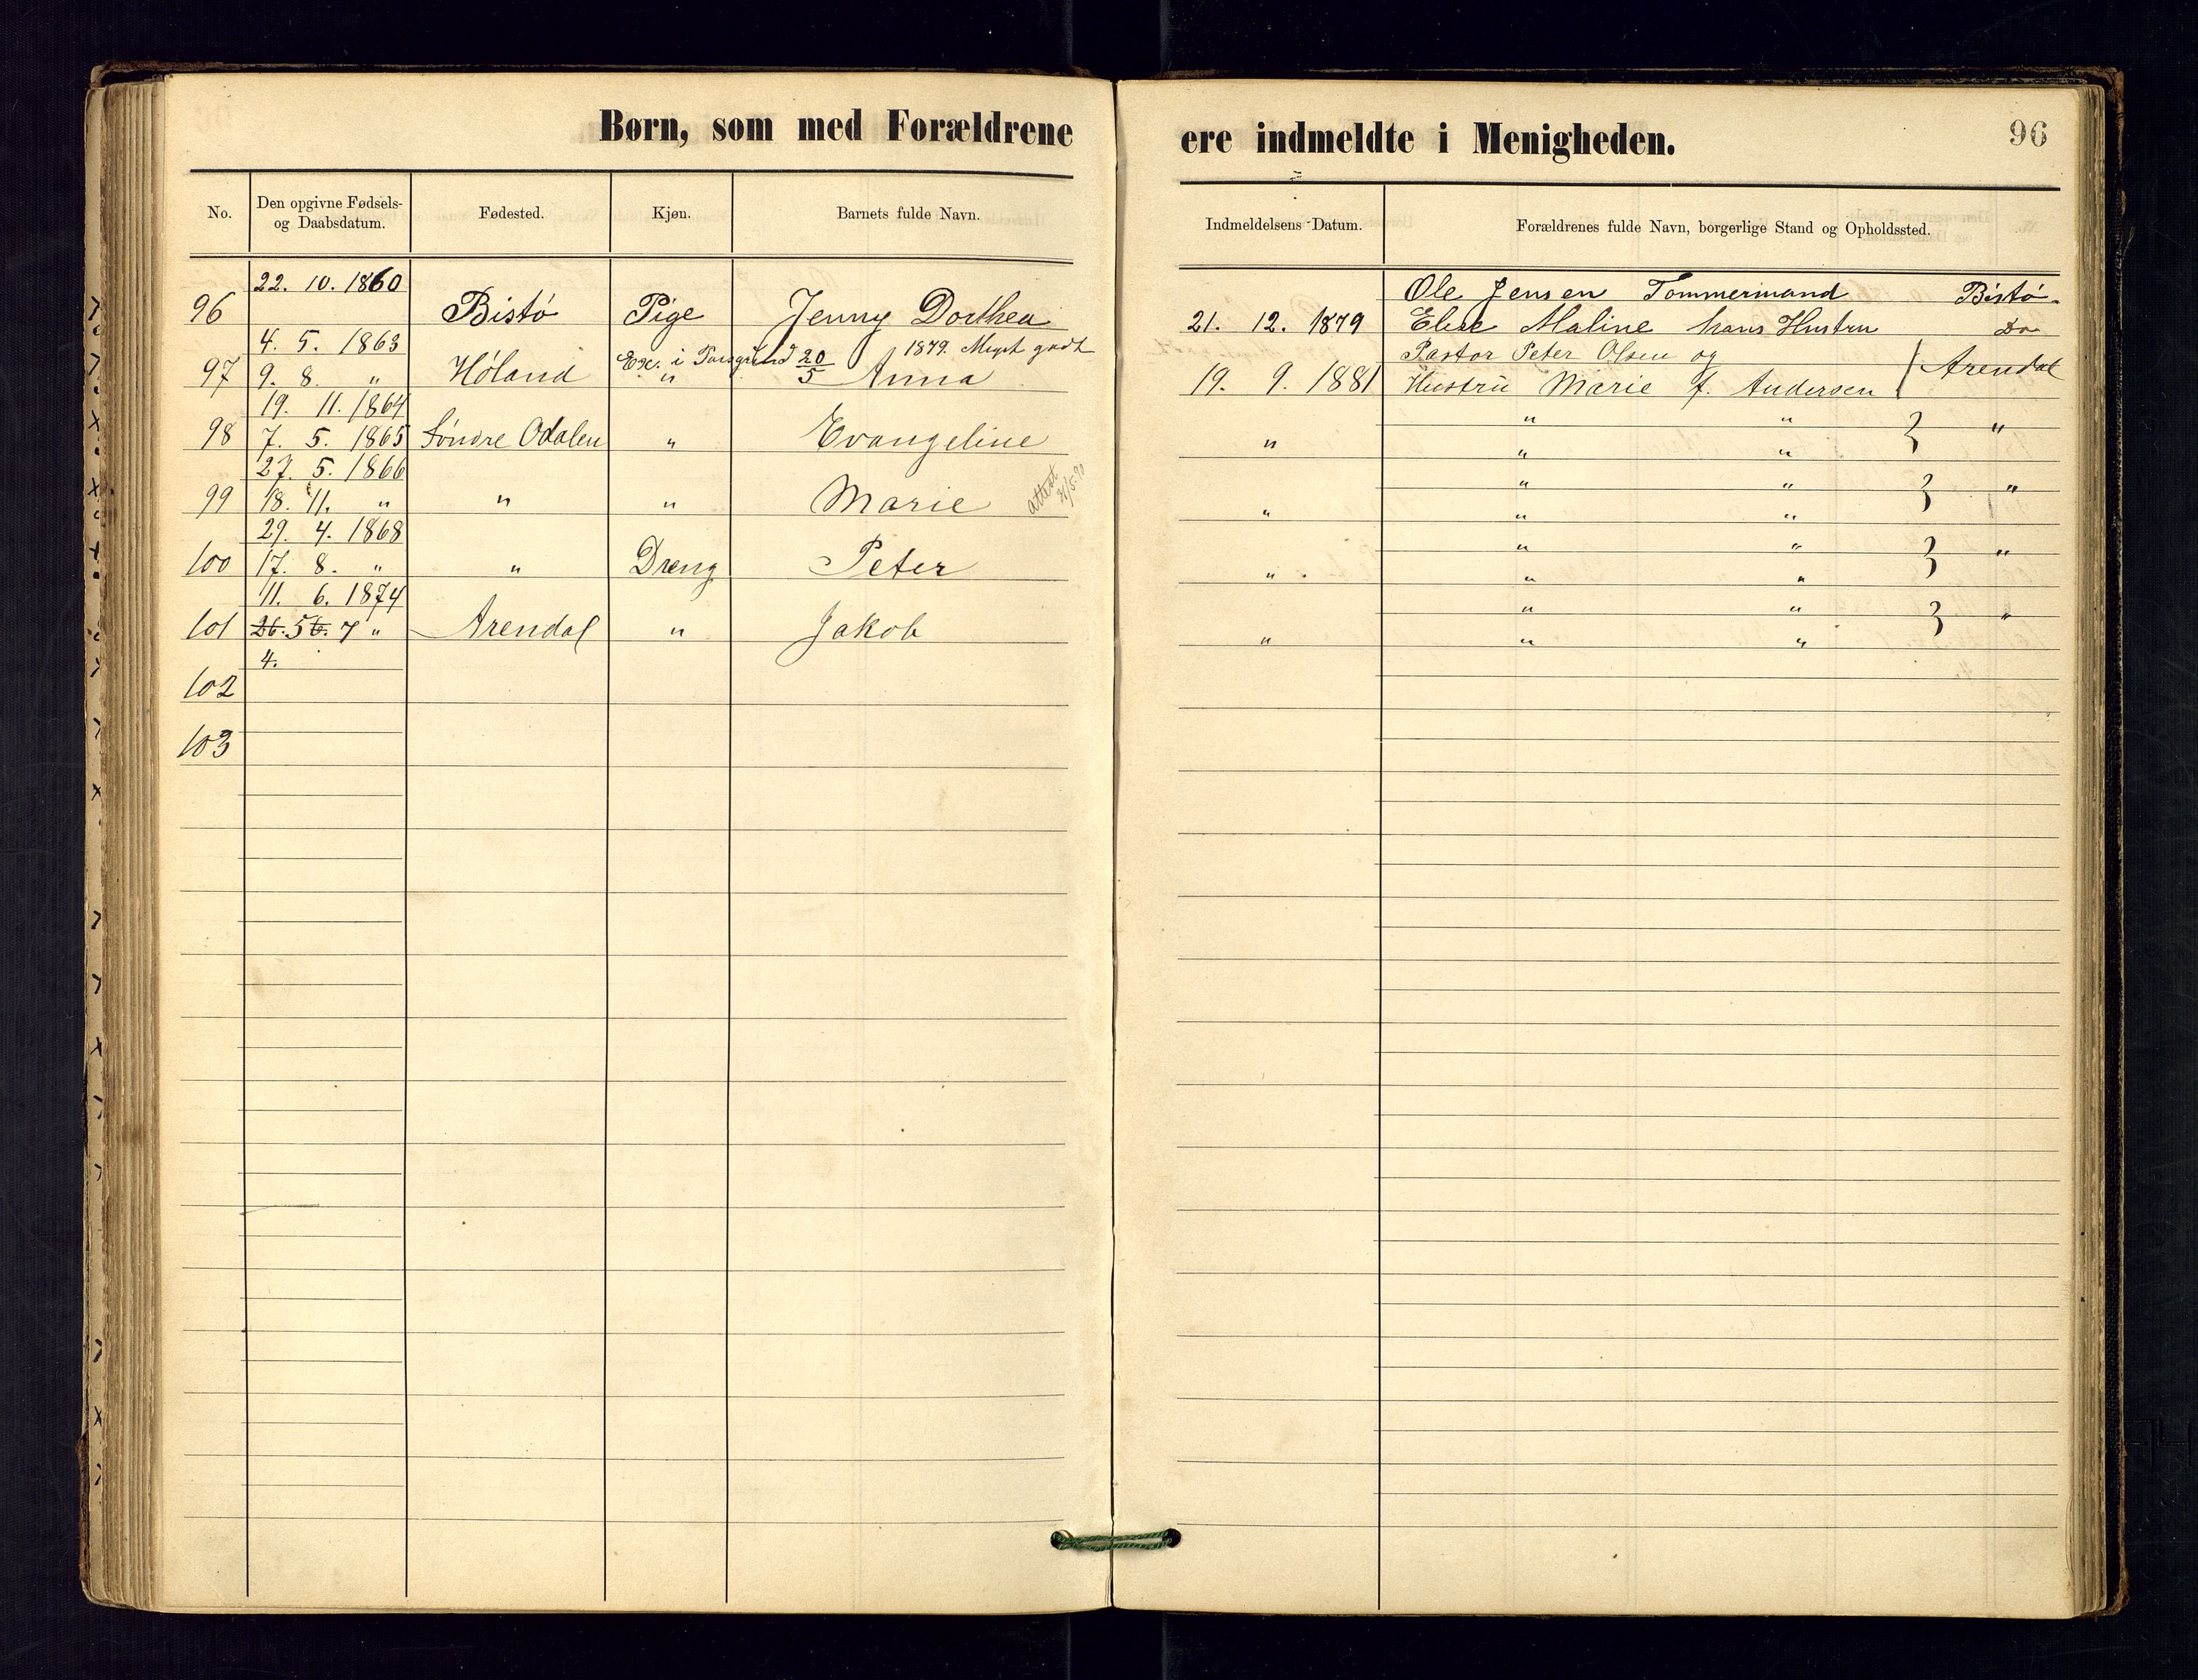 Børn, som med Forældrene ere indmeldte i Menigheden. 96
No. Den opgivne Fødsels- og Daabsdatum. Fødested. Kjøn. Barnets fulde Navn. Indmeldelsens Datum. Forældrenes fulde Navn, borgerlige Stand og Opholdssted.
22. 10. 1860 Ole Jensen Tømmermand Bistø
96 Bistø Pige Jenny Dorthea 21. 12. 1879 Elise Maline hans Hustru Do
4. 5. 1863 Ex. i Porsgrund 20/5 1879. Meget godt Pastor Peter Olsen og
97 9. 8. " Høland " Anna 19. 9. 1881 Hustru Marie f. Andersen Arendal
19. 11. 1864 " " "
98 7. 5. 1865 Søndre Odalen " Evangeline " " "
27. 5. 1866 " " "
99 18. 11. " " " Marie attest " " "
29. 4. 1868 " " "
100 17. 8. " " Dreng Peter " " "
11. 6. 1874 " " "
101 26. 5 6. 7 " Arendal " Jakob " " "
4.
102
103